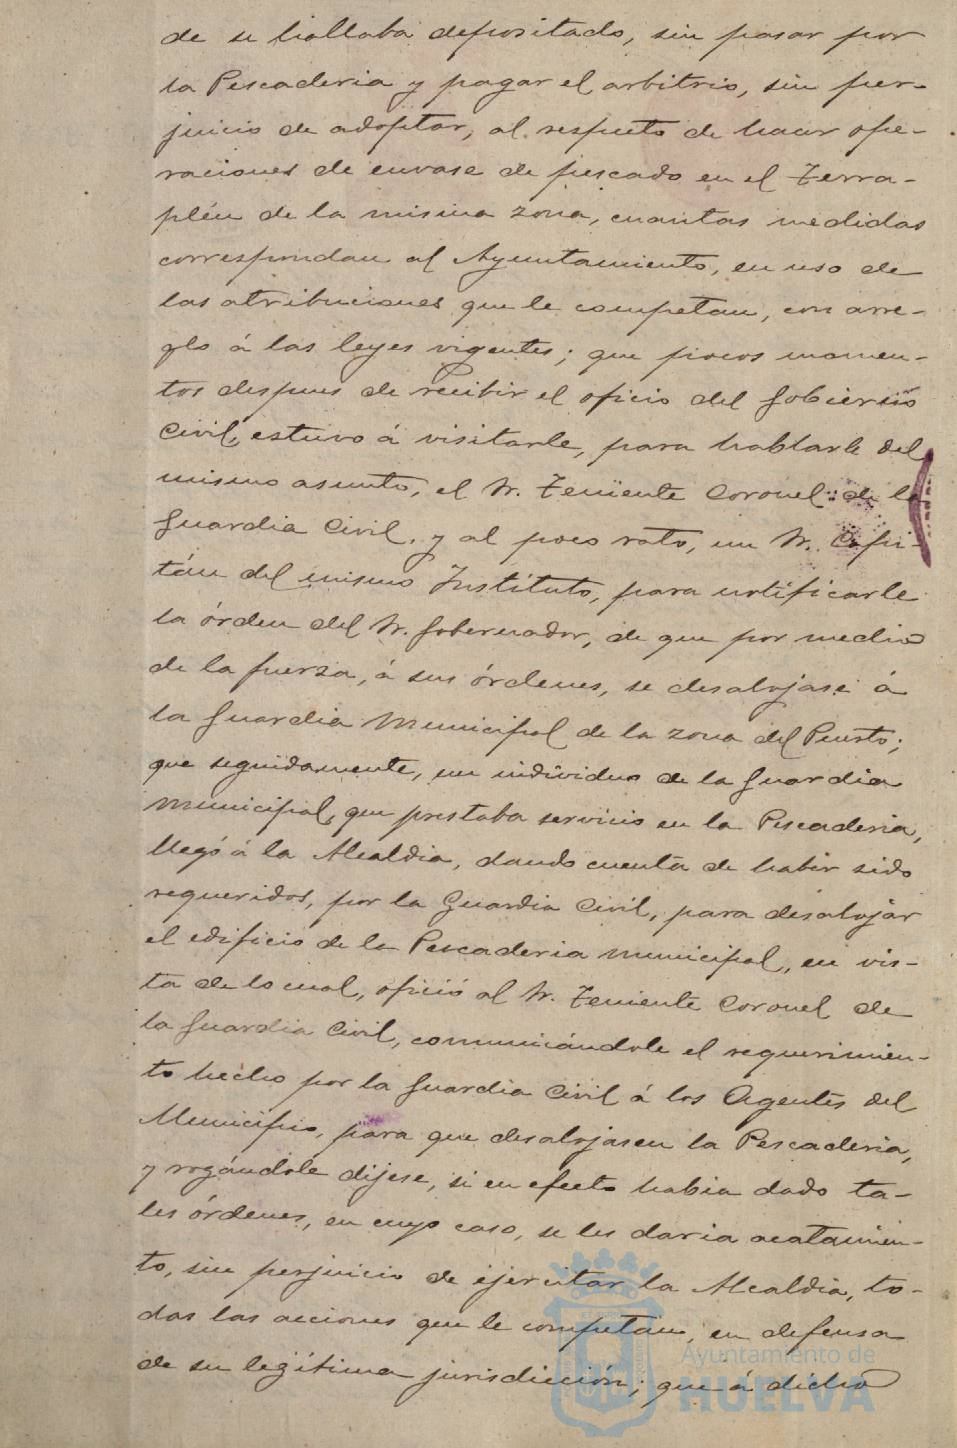 de se hallaba depositado, sin pasar por
la Pescaderia y pagar el arbitrio, sin per-
juicio de adoptar, al respeto de hacer ope-
raciones de envase de pescado en el Terra-
plén de la misma zona, cuantas medidas
correspondan al Ayuntamiento, en uso de
las atribuciones que le competan, con arre-
glo á las leyes vigentes; que pocos momen-
tos despues de recibir el oficio del Gobierno
Civil, estuvo á visitarle, para hablarle del
mismo asunto, el Sr. Teniente Coronel de la
Guardia Civil, y al poco rato, un Sr. Capi-
tán del mismo Instituto, para notificarle
la órden del Sr. Gobernador, de que por medio
de la fuerza, á sus órdenes, se desalojase á
la Guardia Municipal de la zona del Puerto;
que seguidamente, un individuo de la Guardia
Municipal, que prestaba servicio en la Pescaderia,
llegó á la Alcaldia, dando cuenta de haber sido
requeridos, por la Guardia Civil, para desalojar
el edificio de la Pescaderia municipal, en vis-
ta de lo cual, ofició al Sr. Teniente Coronel de
la Guardia Civil, comunicándole el requerimien-
to hecho por la Guardia Civil á los Agentes del
Municipio, para que desalojasen la Pescaderia,
y rogándole dijese, si en efecto habia dado ta-
les órdenes, en cuyo caso, se les daria acatamien-
to, sin perjuicio de ejercitar la Alcaldia, to-
das las acciones que le competan, en defensa
de su legítima jurisdicción; que á dicho
Ayuntamiento de
HUELVA